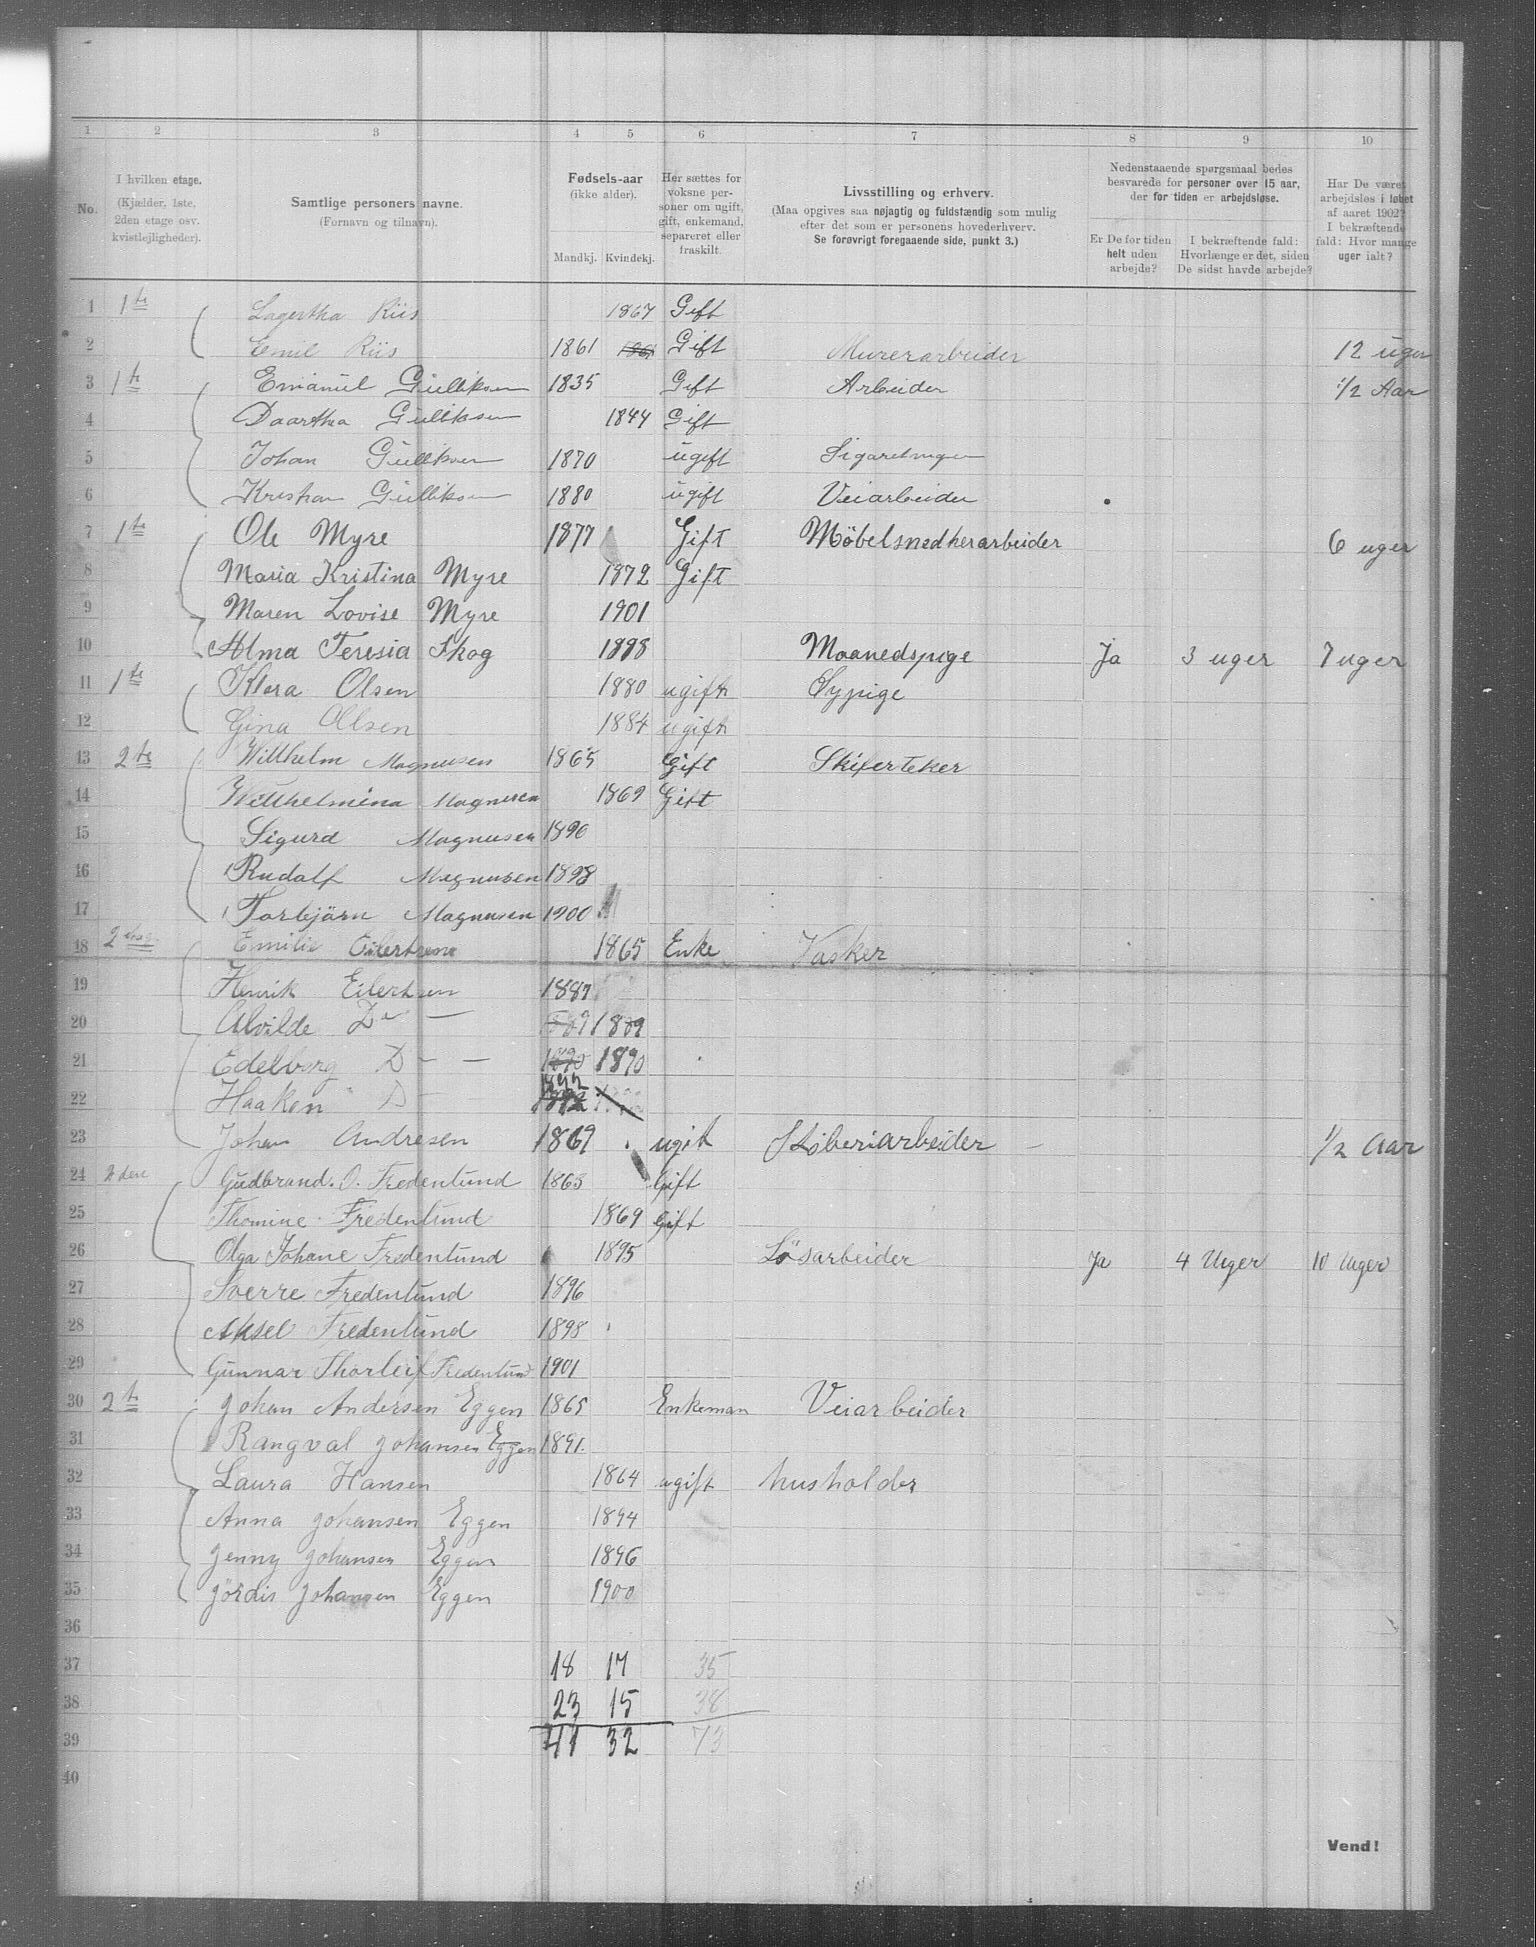 1 2 3 4 5 6 7 8 9 10
No.
I hvilken etage.
(Kjælder, 1ste,
2den etage osv.
kvistlejligheder).
Samtlige personers navne.
(Fornavn og tilnavn).
Fødsels-aar
(ikke alder).
Mandkj. Kvindekj.
Her sættes for
voksne per-
soner om ugift,
gift, enkemand,
separeret eller
fraskilt.
Livsstilling og erhverv.
(Maa opgives saa nøjagtig og fuldstændig som mulig
efter det som er personens hovederhverv.
Se forøvrigt foregaaende side, punkt 3.)
Nedenstaaende spørgsmaal bedes
besvarede for personer over 15 aar,
der for tiden er arbejdsløse.
Er De for tiden
helt uden
arbejde?
I bekræftende fald:
Hvorlænge er det, siden
De sidst havde arbejde?
Har De været
arbejdsløs i løbet
af aaret 1902?
I bekræftende
fald: Hvor mange
uger ialt?
1 1te Lagertha Riis 1867 Gift
2 Emil Riis 1861 Gift Murerarbeider 12 uger
3 1te Emanuel Gulliksen 1835 Gift Arbeider 1/2 Aar
4 Daartha Gulliksen 1844 Gift
5 Johan Gulliksen 1870 ugift
6 Kristian Gulliksen 1880 ugift Veiarbeider
7 1te Ole Myre 1877 Gift Møbelsnedkerarbeider 6 uger
8 Maria Kristina Myre 1872 Gift
9 Maren Lovise Myre 1901
10 Alma Teresia Skog 1888 Maanedspige Ja 3 uger 7 uger
11 1te Klara Olsen 1880 ugift Sypige
12 Gina Olsen 1884 ugift
13 2te Willhelm Magnusen 1865 Gift Skiferteker
14 Willhelmina Magnusen 1869 Gift
15 Sigurd Magnusen 1890
16 Rudolf Magnusen 1898
17 Torbjørn Magnusen 1900
18 Emilie Eilertsen 1865 Enke Vasker
19 Henrik Eilertsen 1887
20 Alvilde Do — 1889
21 Edelborg D — — 1890 1890
22 Haaken D — 1892
23 Johan Andresen 1869 ugift Støberiarbeider 1/2 Aar
24 2den Gudbrand. O. Fredenlund 1863 Gift
25 Thomine Fredenlund 1869 Gift
26 Olga Johane Fredenlund 1895 Løsarbeider Ja 4 Uger 10 Uger
27 Sverre Fredenlund 1896
28 Aksel Fredenlund 1898
29 Gunnar Thorleif Fredenlund 1901
30 2te Johan Andersen Eggen 1865 Enkeman Veiarbeider
31 Rangval Johansen Eggen 1891.
32 Laura Hansen 1864 ugift husholder
33 Anna Johansen Eggen 1894
34 Jenny Johansen Eggen 1896
35 Jördis Johansen Eggen 1900
36
37 18 17 35
38 23 15 38
39 41 32 73
40
Vend!